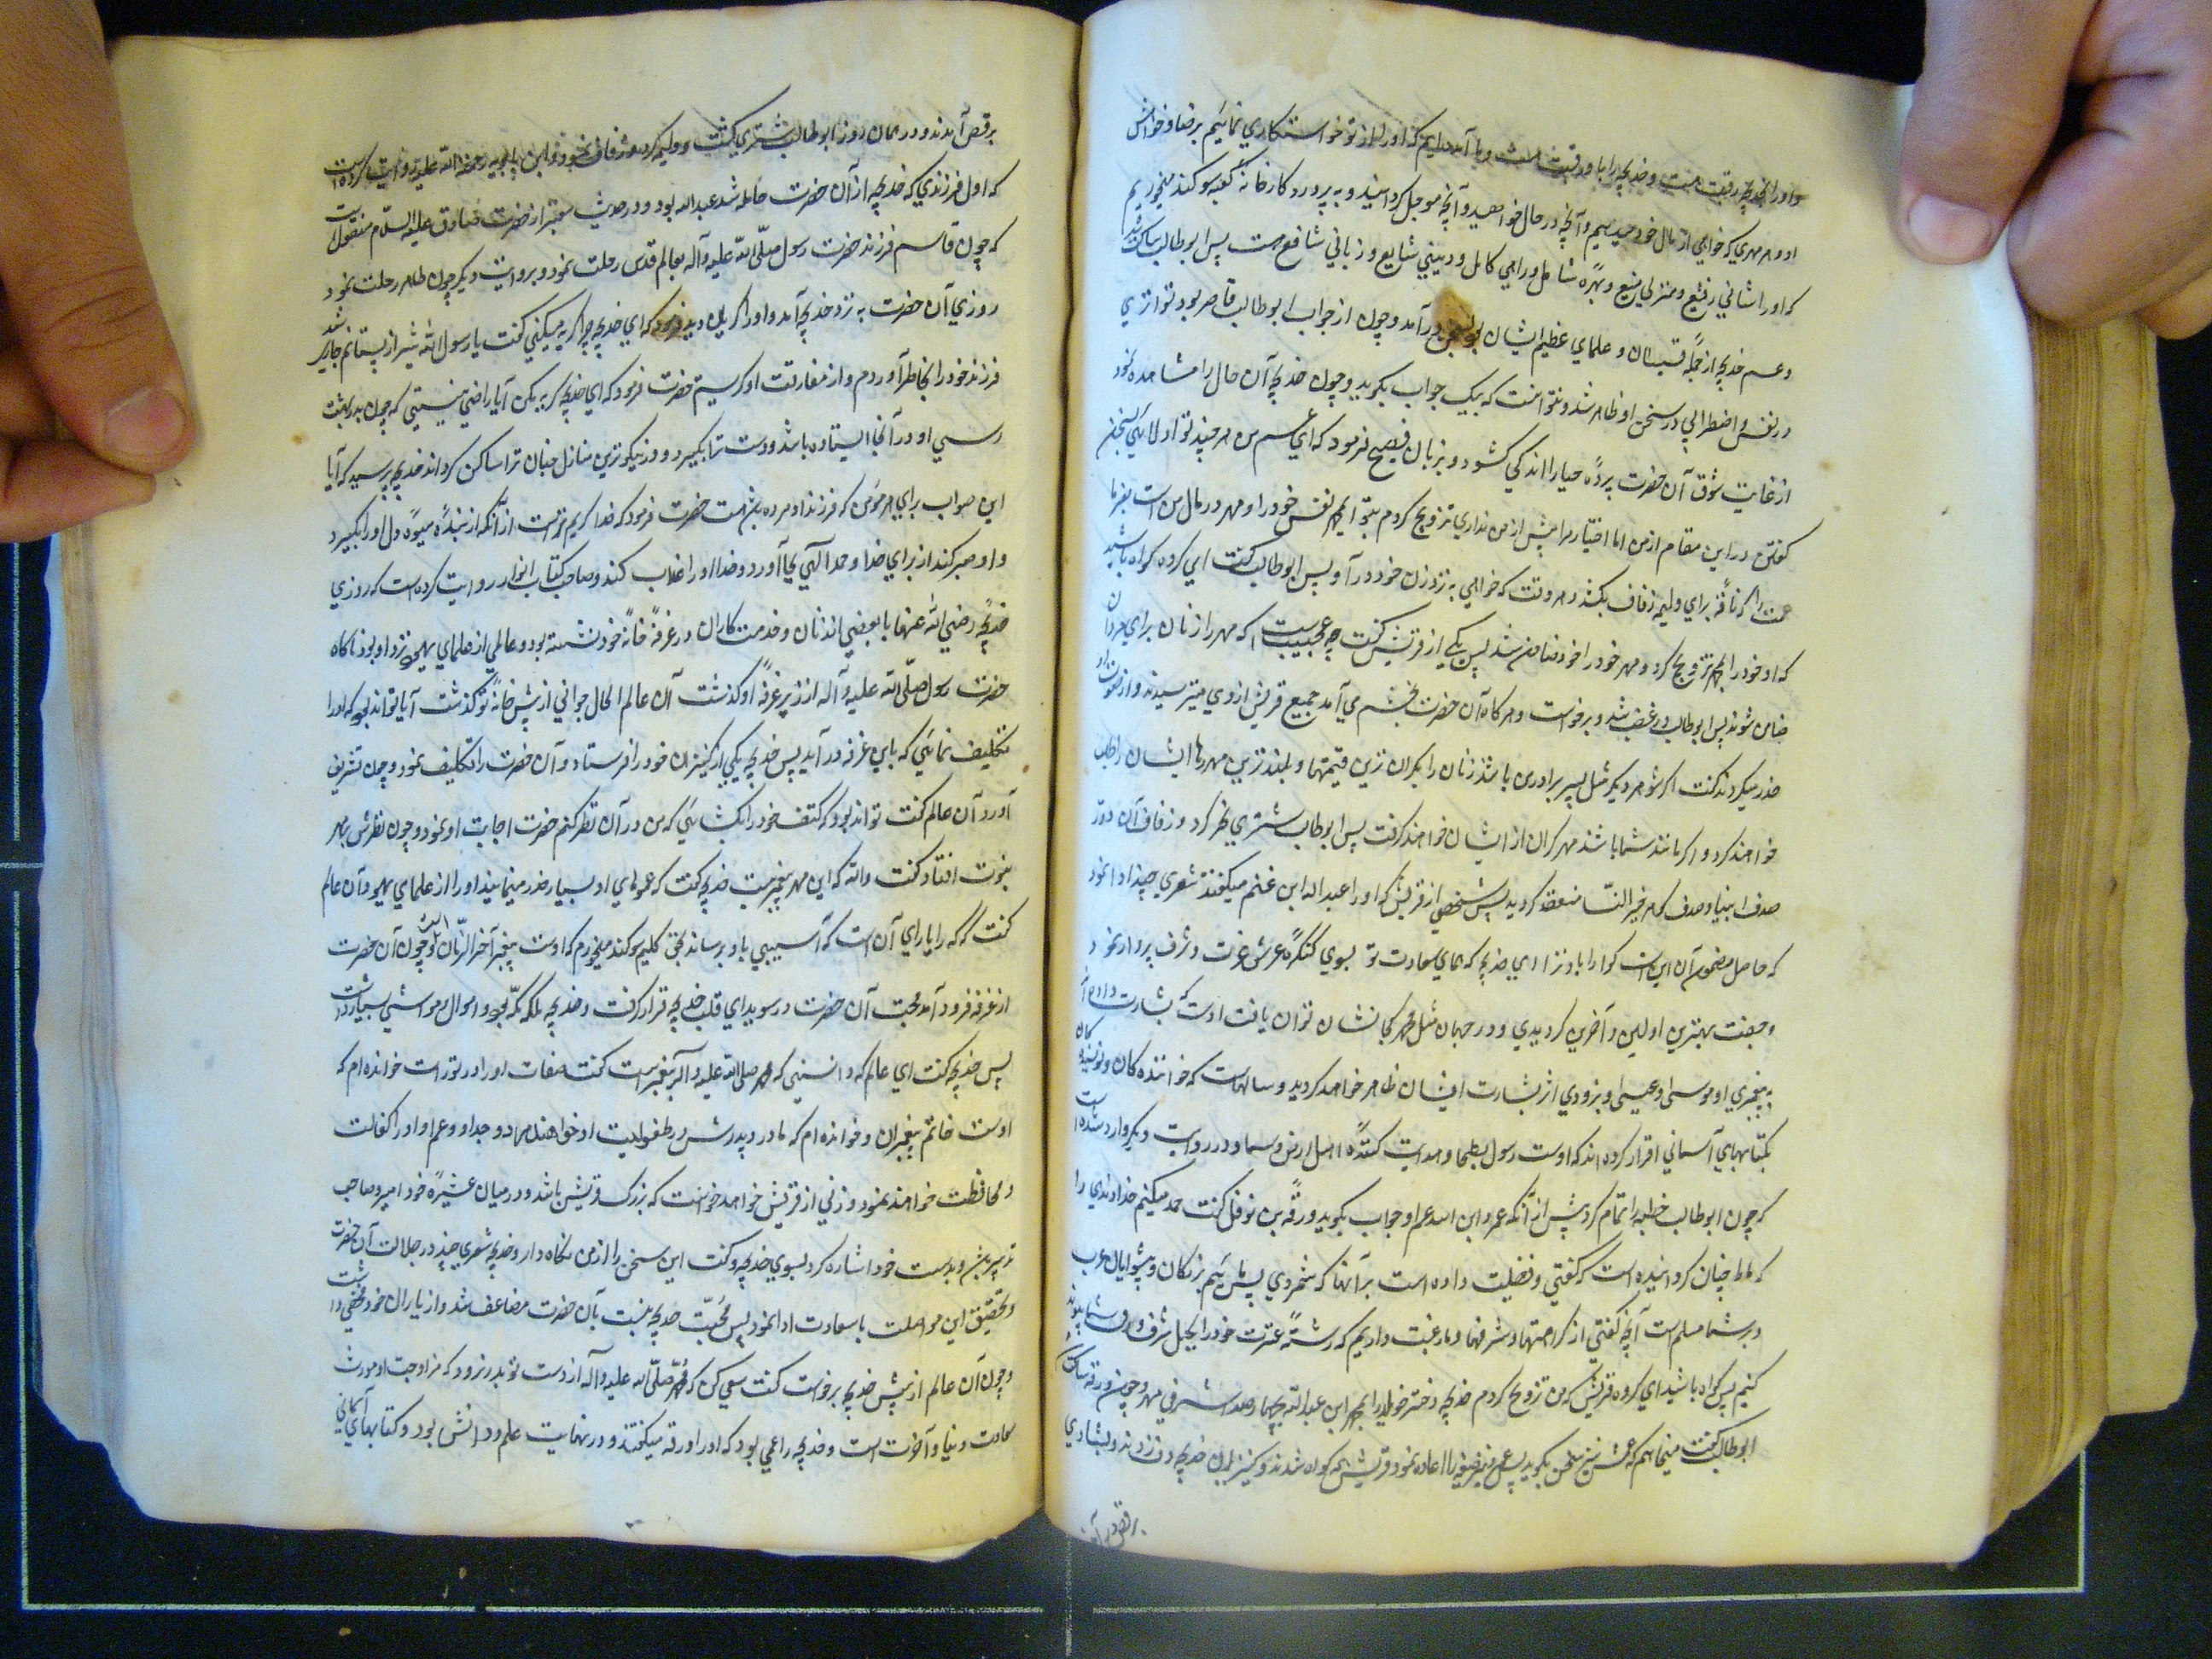 و او را بخدیجه رغبت هست و خدیجه را با و رغبت هست و ما آمده‌ایم که او را از تو خواستکاری نمائیم برضا و خواهش
او و هر مهری که خواهی از مال خود میدهیم و آنچه در حال خواهید و آنچه موجل کردانید و به پروردکار خانهٔ کعبه سوکند میخوریم
که او را شانی رفیع و منزلی منیع و بهرهٔ شامل و رایی کامل و دینی شایع و زبانی شافع هست پس ابوطالب ساکت شد
و عم خدیجه از جملهٔ قسیسان و علمای عظیم ایشان بود بسخن درآمد و چون از جواب ابوطالب قاصر بود تواتری
در نفس و اضطرابی در سخن او ظاهر شد و نتوانست که نیک جواب بکوید و چون خدیجه آن حال را مشاهده نمود
از غایت شوق آن حضرت پردهٔ حیا را اندکی کشود و بزبان فصیح فرمود که ای عم من هر چند تو اولائی بسخن
کفتن در این مقام از من اما اختیار مرا بیش از من نداری تزویج کردم بتو ای محمد نفس خود را و مهر در مال من است بفرما
عمت را که ناقهٔ برای ولیمهٔ زفاف بکشد و هر وقت که خواهی به نزد زن خود در آ و پس ابوطالب کفت ای کروه کواه باشید
که او خود را بمحمد تزویج کرد و مهر خود را خود ضامن شد پس یکی از قریش کفت چه عجیب است که مهر را زنان برای مردان
ضامن شوند پس ابوطالب در غضب شد و برخواست و هر کاه آن حضرت بخشم می‌آمد جمیع قریش از وی میترسیدند و از صولت او
حذر میکردند کفت اکر شوهر دیکر مثل پسر برادر من باشد زنان را بکران ترین قیمتها و بلندترین مهرها ایشان را طلب
خواهند کرد و اکر مانند شما باشد مهر کران از ایشان خواهند کرفت پس ابوطالب شتری نحر کرد و زفاف آن دو در
صدف انبیا و صدف کهر خیر النسا منعقد کردید پس شخصی از قریش که او را عبد الله ابن غنم میکفتند شعری چند ادا نمود
که حاصل مضمون آن این است کوارا باد ترا ای خدیجه که همای سعادت تو بسوی کنکرهٔ عرش عزت و شرف پرواز نمود
و جفت بهترین اولین و آخرین کردیدی و در جهان مثل محمد کجا نشان توان یافت اوست که بشارت داده اند
به پیغمبری او موسی و عیسی و بزودی اثر بشارت ایشان ظاهر خواهد کردید و سالهاست که خوانندکان و نویسندکان
کتابهای آسمانی اقرار کرده اند که اوست رسول بطحا و هدایت کنندهٔ اهل ارض و سما و در روایت دیکر وارد شده است
که چون ابوطالب خطبه را تمام کرد پیش از آنکه عمرو ابن اسد عم او جواب بکوید ورقه بن نوفل کفت حمد میکنم خداوندی را
که ما را چنان کردانیده است که کفتی و فضیلت داده است بر آنها که شمردی پس مائیم بزرکان و پیشوایان عرب
و بر شما مسلم است آنچه کفتی از کرامتها و شرفها و ما رغبت داریم که رشتهٔ عترت خود را بحبل شرف و شما پیوند
کنیم پس کواه باشید ای کروه قریش که من تزویج کردم خدیجه دختر خویلد را بمحمد ابن عبد الله بچهارصد اشرفی مهر و چون ورقه ساکت شد
ابوطالب کفت میخواهم که عمش نیز سخن بکوید پس عمش نیز صیغه را اعاده نمود و قریش همه کواه شدند و کنیزان خدیجه دف زدند و بشادی
برقص در آمدند
برقص آمدند و در همان روز ابوطالب شتری کشت و ولیمه کرد و زفاف نمود و ابن بابویه رحمة الله علیه روایت کرده است
که اول فرزندی که خدیجه از آن حضرت حامله شد عبد الله بود و در حدیث معتبر از حضرت صادق علیه السلام منقول است
که چون قاسم فرزند حضرت رسول صلی الله علیه و آله بعالم قدس رحلت نمود و بروایت دیکر چون طاهر رحلت نمود
روزی آن حضرت به نزد خدیجه آمد و او را کریان دید فرمود که ای خدیجه چرا کریه میکنی کفت یا رسول الله شیر از پستانم جاری شد
فرزند خود را بخاطر آوردم و از مفارقت او کریستم حضرت فرمود که ای خدیجه کریه مکن آیا راضی نیستی که چون بدر بهشت
رسی او در آنجا ایستاده باشد و دست ترا بکیرد و در نیکوترین منازل جنان ترا ساکن کرداند خدیجه پرسید که آیا
این ثواب برای هر مؤمن که فرزند او مرده باشد هست حضرت فرمود که خدا کریم تر است از آنکه از بندهٔ میوهٔ دل او را بکیرد
و او صبر کند از برای خدا و حمد الهی بجا آورد و خدا او را عذاب کند و صاحب کتاب انوار روایت کرده است که روزی
خدیجه رضی الله عنها با بعضی از زنان و خدمتکاران در غرفهٔ خانهٔ خود نشسته بود و عالمی از علمای یهود نزد او بود ناکاه
حضرت رسول صلی الله علیه و آله از زیر غرفهٔ او کذشت آن عالم الحال جوانی از پیش خانهٔ تو کذشت آیا تواند بود که او را
تکلیف نمائی که باین غرفه در آید پس خدیجه یکی از کنیزان خود را فرستاد و آن حضرت را تکلیف نمود و چون تشریف
آورد آن عالم کفت تواند بود که کتف خود را بکشائی که من در آن نظر کنم حضرت اجابت او نمود و چون نظرش بمهر
نبوت افتاد کفت والله که این مهر پیغمبریست خدیجه کفت که عموهای او بسیار حذر مینمایند او را از علمای یهود آن عالم
کفت که کرا یارای آن است که آسیبی باو برساند بحق کلیم سوکند میخورم که اوست پیغمبر آخر الزمان و چون آن حضرت
از غرفه فرود آمد محبت آن حضرت در سویدای قلب خدیجه قرار کرفت و خدیجه ملکه مکه بود و اموال و مواشی بسیار داشت
پس خدیجه کفت ای عالم که دانستی که محمد صلی الله علیه و آله پیغمبر است کفت صفات او را در تورات خوانده ام که
اوست خاتم پیغمبران و خوانده ام که مادر و پدرش در طفولیت او خواهند مرد و جد او و عم او او را کفالت
و محافظت خواهند نمود و زنی از قریش خواهد خواست که بزرک قریش باشد و در میان عشیرهٔ خود امیر و صاحب
تدبیر باشد و بدست خود اشاره کرد بسوی خدیجه و کفت این سخن را از من نکاه دار و خدیجه شعری چند در جلالت آن حضرت
و تحقیق این مواصلت با سعادت ادا نمود پس محبت خدیجه نسبت بآن حضرت مضاعف شد و از یاران خود مخفی داشت
و چون آن عالم از پیش خدیجه برخواست کفت سعی کن که محمد صلی الله علیه و آله از دست تو بدر نرود که مزاوجت او مورث
سعادت دنیا و آخرت است و خدیجه را عمی بود که او را ورقه میکفتند و در نهایت علم و دانش بود و کتابهای آسمانی